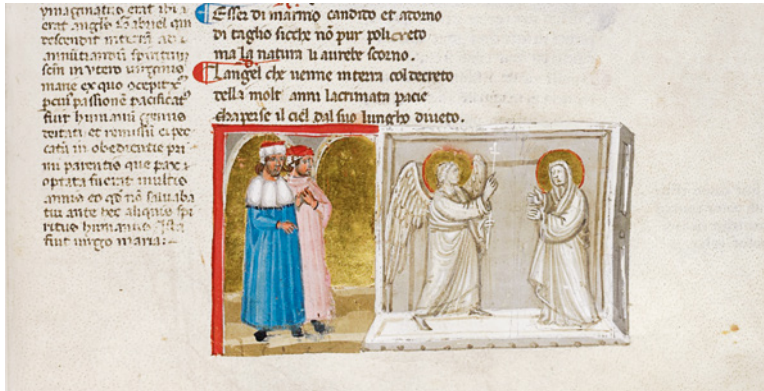 ymaginatiuo erat ibi a
erat angelus gabriel qui
descendit in terra ad
virginis
mane ex quo
passione pacificat
fuit humani generis
et remissi
catu in obedientie pri
mi parentis que pax
optata fuerat multis
annis eo qd no salua
tur ante hec aliquis spi
ritus humanus Ista
fuit uirgo maria:
Esser di marmo candito et atorno
di taglio sicche no pur policreto
ma la natura li aurebe scorno.
Langel che uenne in terra col decreto
della molt anni lacrimata pacie
chaperse il ciel dal suo lungho diueto.